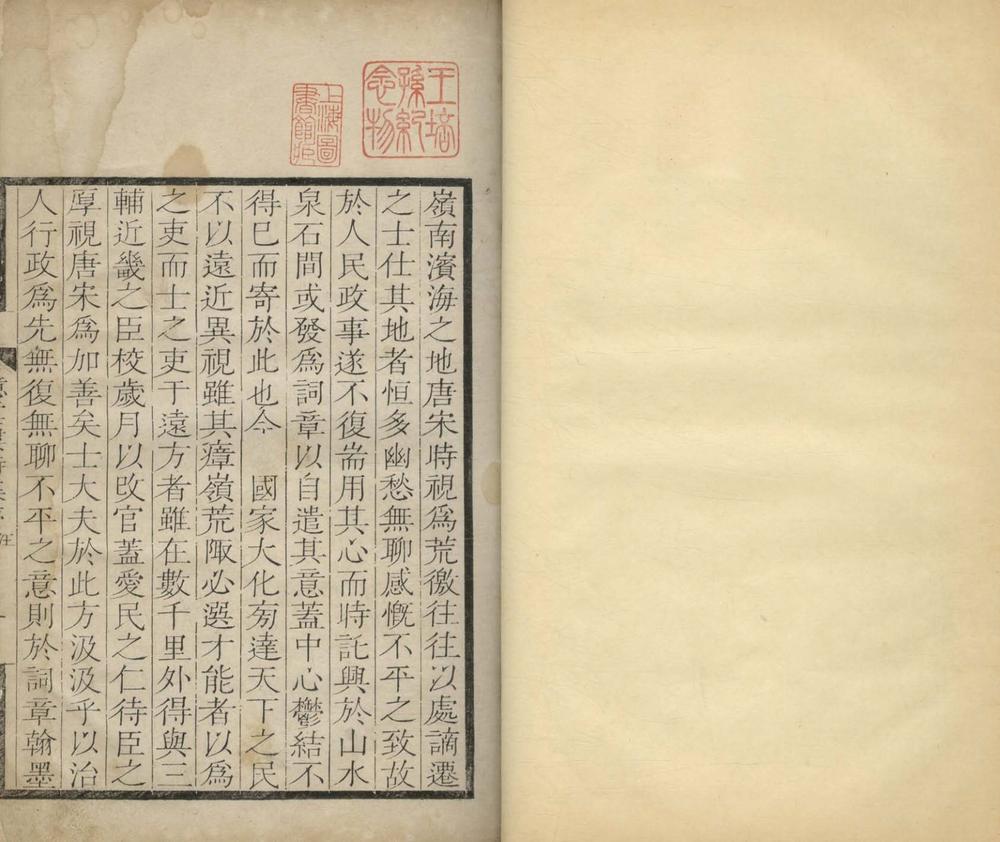 王培
孫紀
念物
上海圖
書館藏
嶺南濱海之地唐宋時視爲荒徼往往以處謫遷
之士仕其地者恒多幽愁無聊感慨不平之致故
於人民政事遂不復耑用其心而時託興於山水
泉石間或發爲詞章以自遣其意蓋中心鬱結不
得已而寄於此也今　國家大化旁達天下之民
不以遠近異視雖其瘴嶺荒陬必選才能者以爲
之吏而士之吏于遠方者雖在數千里外得與三
輔近畿之臣校歲月以改官蓋愛民之仁待臣之
厚視唐宋爲加善矣士大夫於此方汲汲乎以治
人行政爲先無復無聊不平之意則於詞章翰墨